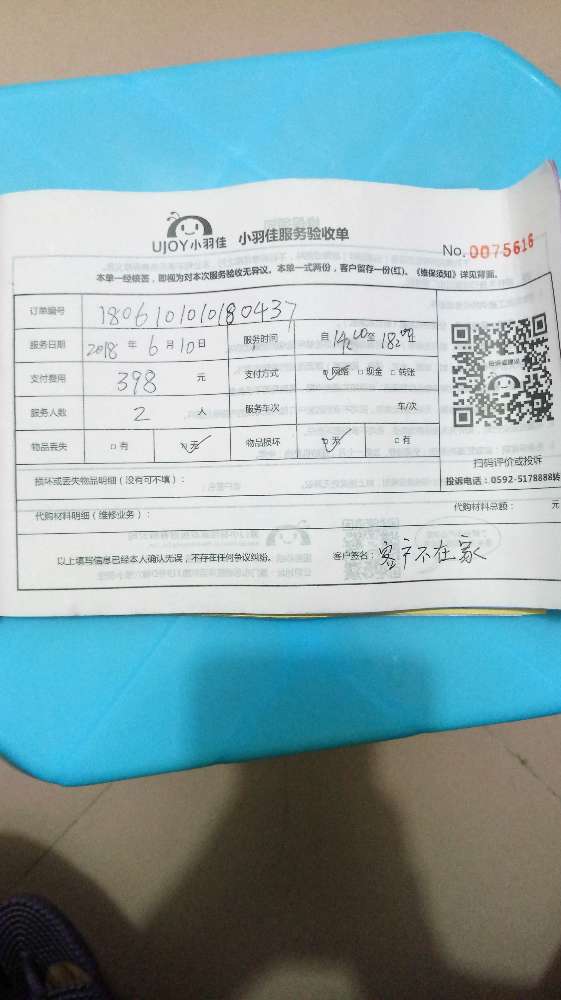 UJOY小羽佳 小羽佳服务验收单
No. 0075616
本单一经核签，即视为对本次服务验收无异议。本单一式两份，客户留存一份(红)。《维保须知》详见背面。
订单编号 1806101010180437
服务日期 2018 年 6 月 10 日 服务时间 自 14:00 至 18:00 止
支付费用 398 元 支付方式 ☑ 网络 □ 现金 □ 转账
服务人数 2 人 服务车次 车/次
物品丢失 □ 有 ☑ 无 物品损坏 ☑ 无 □ 有
扫码评价或投诉
损坏或丢失物品明细（没有可不填）：
投诉电话：0592-5178888转
代购材料明细（维修业务）： 代购材料总额： 元
以上填写信息已经本人确认无误，不存在任何争议纠纷。 客户签名：客户不在家